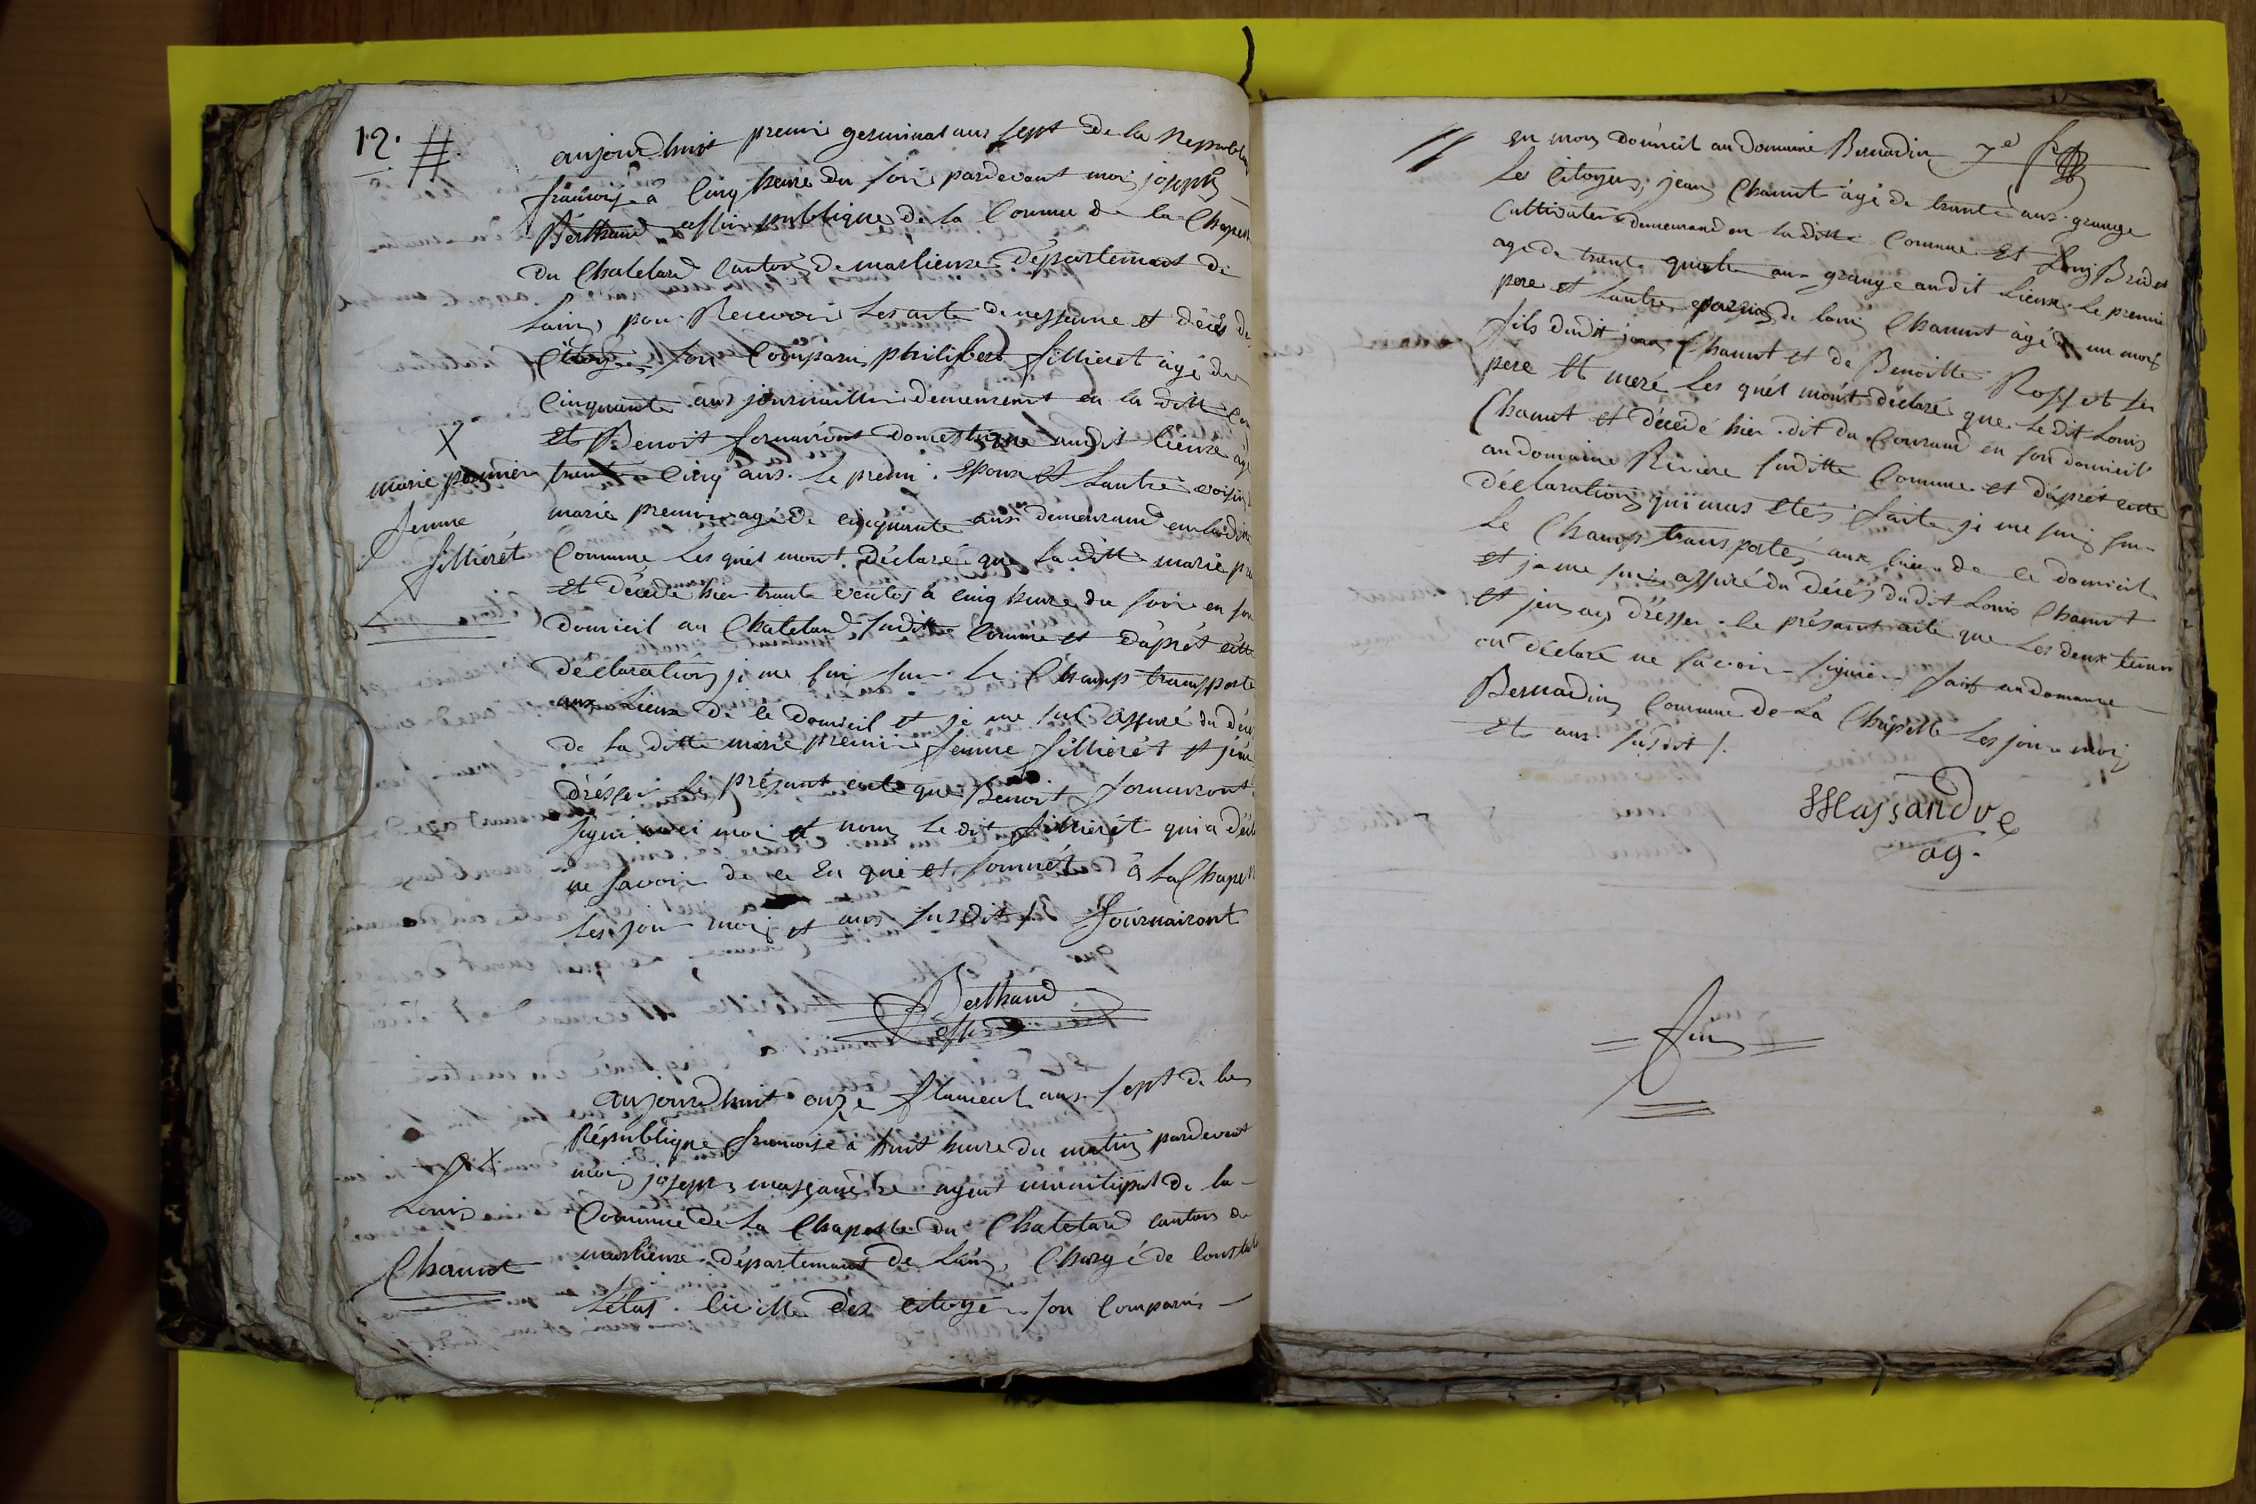 12. #
aujourdhuit premier germinal ans sept de la Republi
francoise a Cinq heure du soire pardevant moi joseph
Berthaud offisie publique de la Comune de la Chapell
du Chatelard Canton de marlieux Département de
Lain, pour Recevoir Les acte de nessance et décès de
Citoyen son Comparu philibert fillieret agé de
Cinquante ans journallier demeurent en la ditte Com
et Benoit fornairont domestique audit lieux agé
trente Cinq ans. le premier Epoux et Lautre voisin
X
marie premier
femme
fillierét
marie premier agé de cinquante ans demeurand en la ditte
Comune Les quel mont déclaré que la ditte marie pre
et décédé hier trente ventos à cinq heure du soire en son
domicil au Chatelard suditte Comune et dáprét cette
declaration je me sui sur le Champ transporte
aux Lieux de ce domicil et je me sui assuré du décé
de la ditte marie premier femme fillierét et jén
drésser le présant acte que Benoit fornairont
signé avec moi et nom le dit fillierét qui a décl
ne savoir de ce En qué et somnét à La Chapell
Les jour mois et ans susdit /. fournairont
Berthaud
offi
aujourdhuit onze flaureal ans sept de la
République francoise a huit heure du matin pardevent
moi joseph massandre agent municipal de la
Commune de La Chapelle du Chatelard canton de
marlieux département de Lain, Chargé de Constate
Létat Civille des citoyen son Comparu
X
Louis
Chanut
en mon domicil au domaine Bernardin 7e
Les Citoyens, jean Chanut agé de trante ans granger
Cultivateur demeurand en la ditte Comune et Louis Bridet
agé de trante quatre ans granger audit Lieux. le premier
pere et Lautre parrin de louis Chanut agé de un mois
fils dudit jean Chanut et de Benoitte Rosset ses
pere et meré Les quél mónt déclaré que le dit Louis
Chanut et décédé hier dit du Courand en son domicil
au domaine Riviere suditte Comune et dáprét cette
déclaration qui mas etés faite je me sui sur
Le Champ transportés aux lieu de ce domicil
et je me sui assuré du décés dudit Louis Chanut
et jen ay drésser le présant acte que Les deux temoin
on déclaré ne savoir signier fait au domaine
Bernardin Comune de La Chapelle Les jour mois
et ans susdit /.
Massandre
ag.
fin